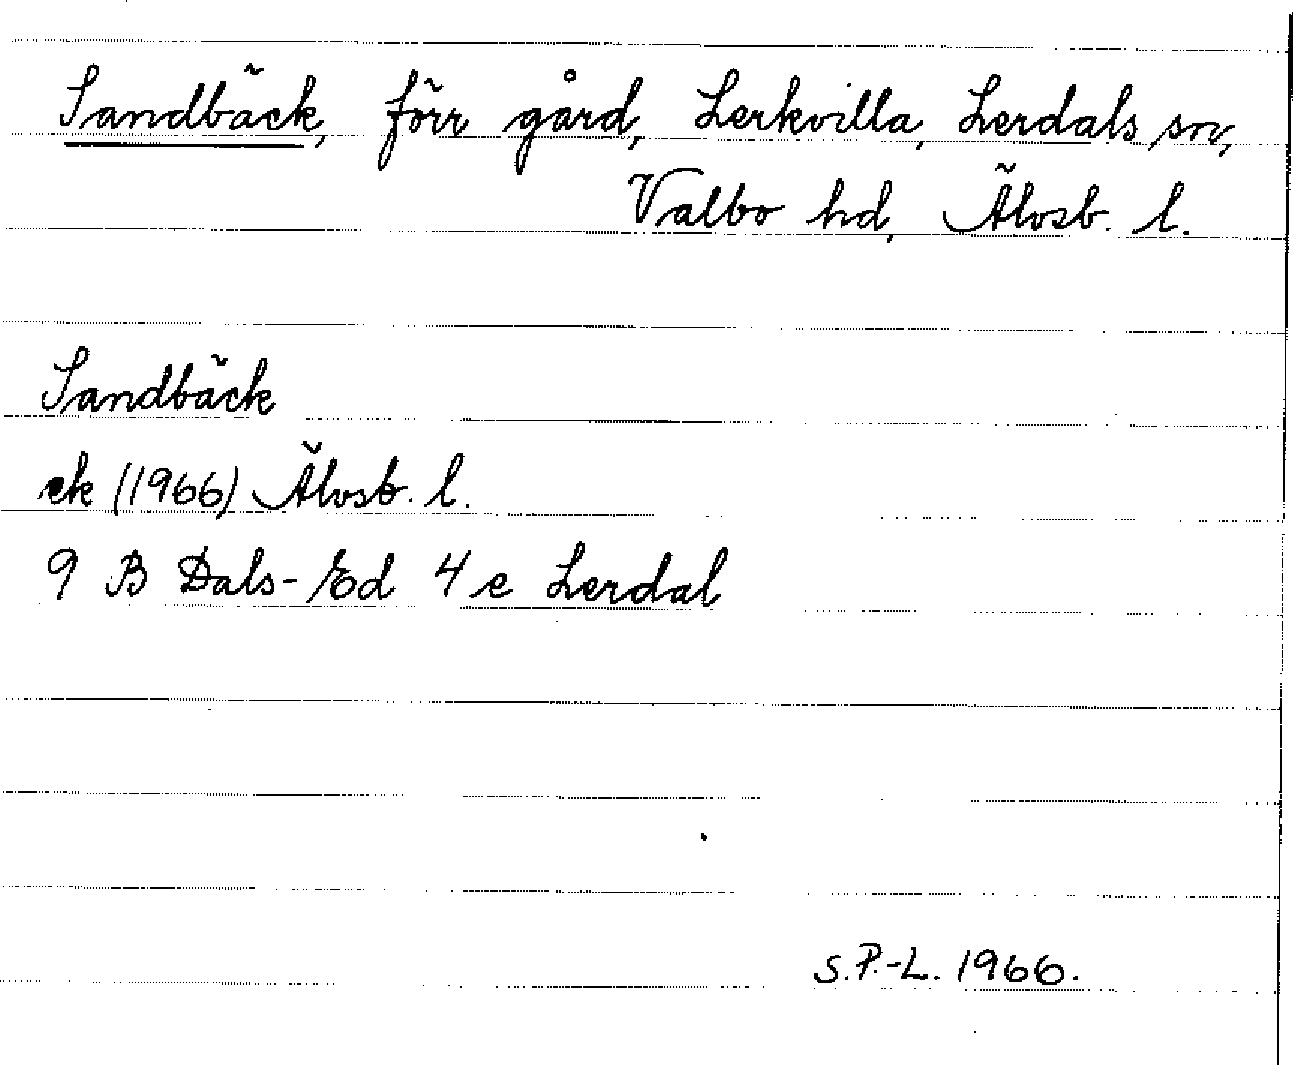 Sandbäck, förr gård, Lerkvilla, Lerdals sn,
Valbo hd, Älvsb. l.
Sandbäck
ek (1966) Älvsb. l.
9 B Dals-Ed 4 e Lerdal
S.P.-L. 1966.